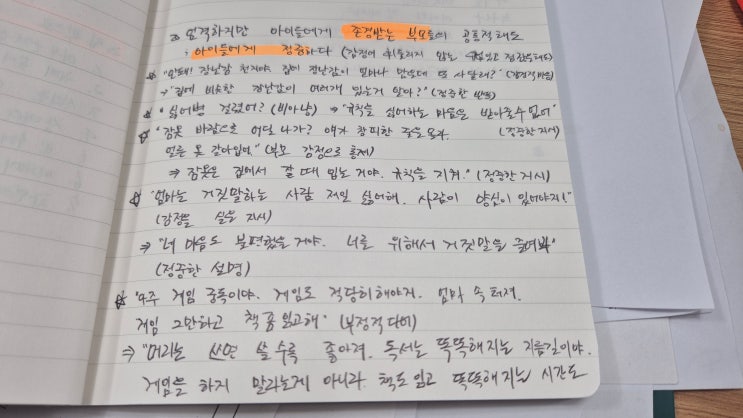 엄격하지만 아이들에게 존경받는 부모들의 공통적 태도
: 아이들에게 정중하다 (감정에 휘둘리지 않는
"안돼! 장난감 천지야. 집에 장난감이 얼마나 많은데 또 사달래?" (감정적 반응)
→ "집에 비슷한 장난감이 여러개 있는거 알아?" (정중한 반응)
"싫어병 걸렸어? (비아냥) → "규칙을 싫어하는 마음은 받아줄 수 없어"
"잠옷 바람으로 어딜 나가? 애가 창피한 줄을 몰라. (정중한 지시)
얼른 못 갈아입어." (부모 감정으로 통제)
⇒ 잠옷은 집에서 잘 때 입는 거야. 규칙을 지켜." (정중한 지시)
"엄마는 거짓말하는 사람 제일 싫어해. 사람이 양심이 있어야지!"
(감정을 실은 지시)
⇒ "너 마음도 불편했을 거야. 너를 위해서 거짓말을 줄여봐"
(정중한 설명)
"아주 게임 중독이야. 게임도 적당히 해야지. 엄마 속 터져.
게임 그만하고 책 좀 읽고해" (부정적 단어)
⇒ "머리는 쓰면 쓸수록 좋아져. 독서는 똑똑해지는 지름길이야.
게임을 하지 말라는게 아니라 책도 읽고 똑똑해지는 시간도